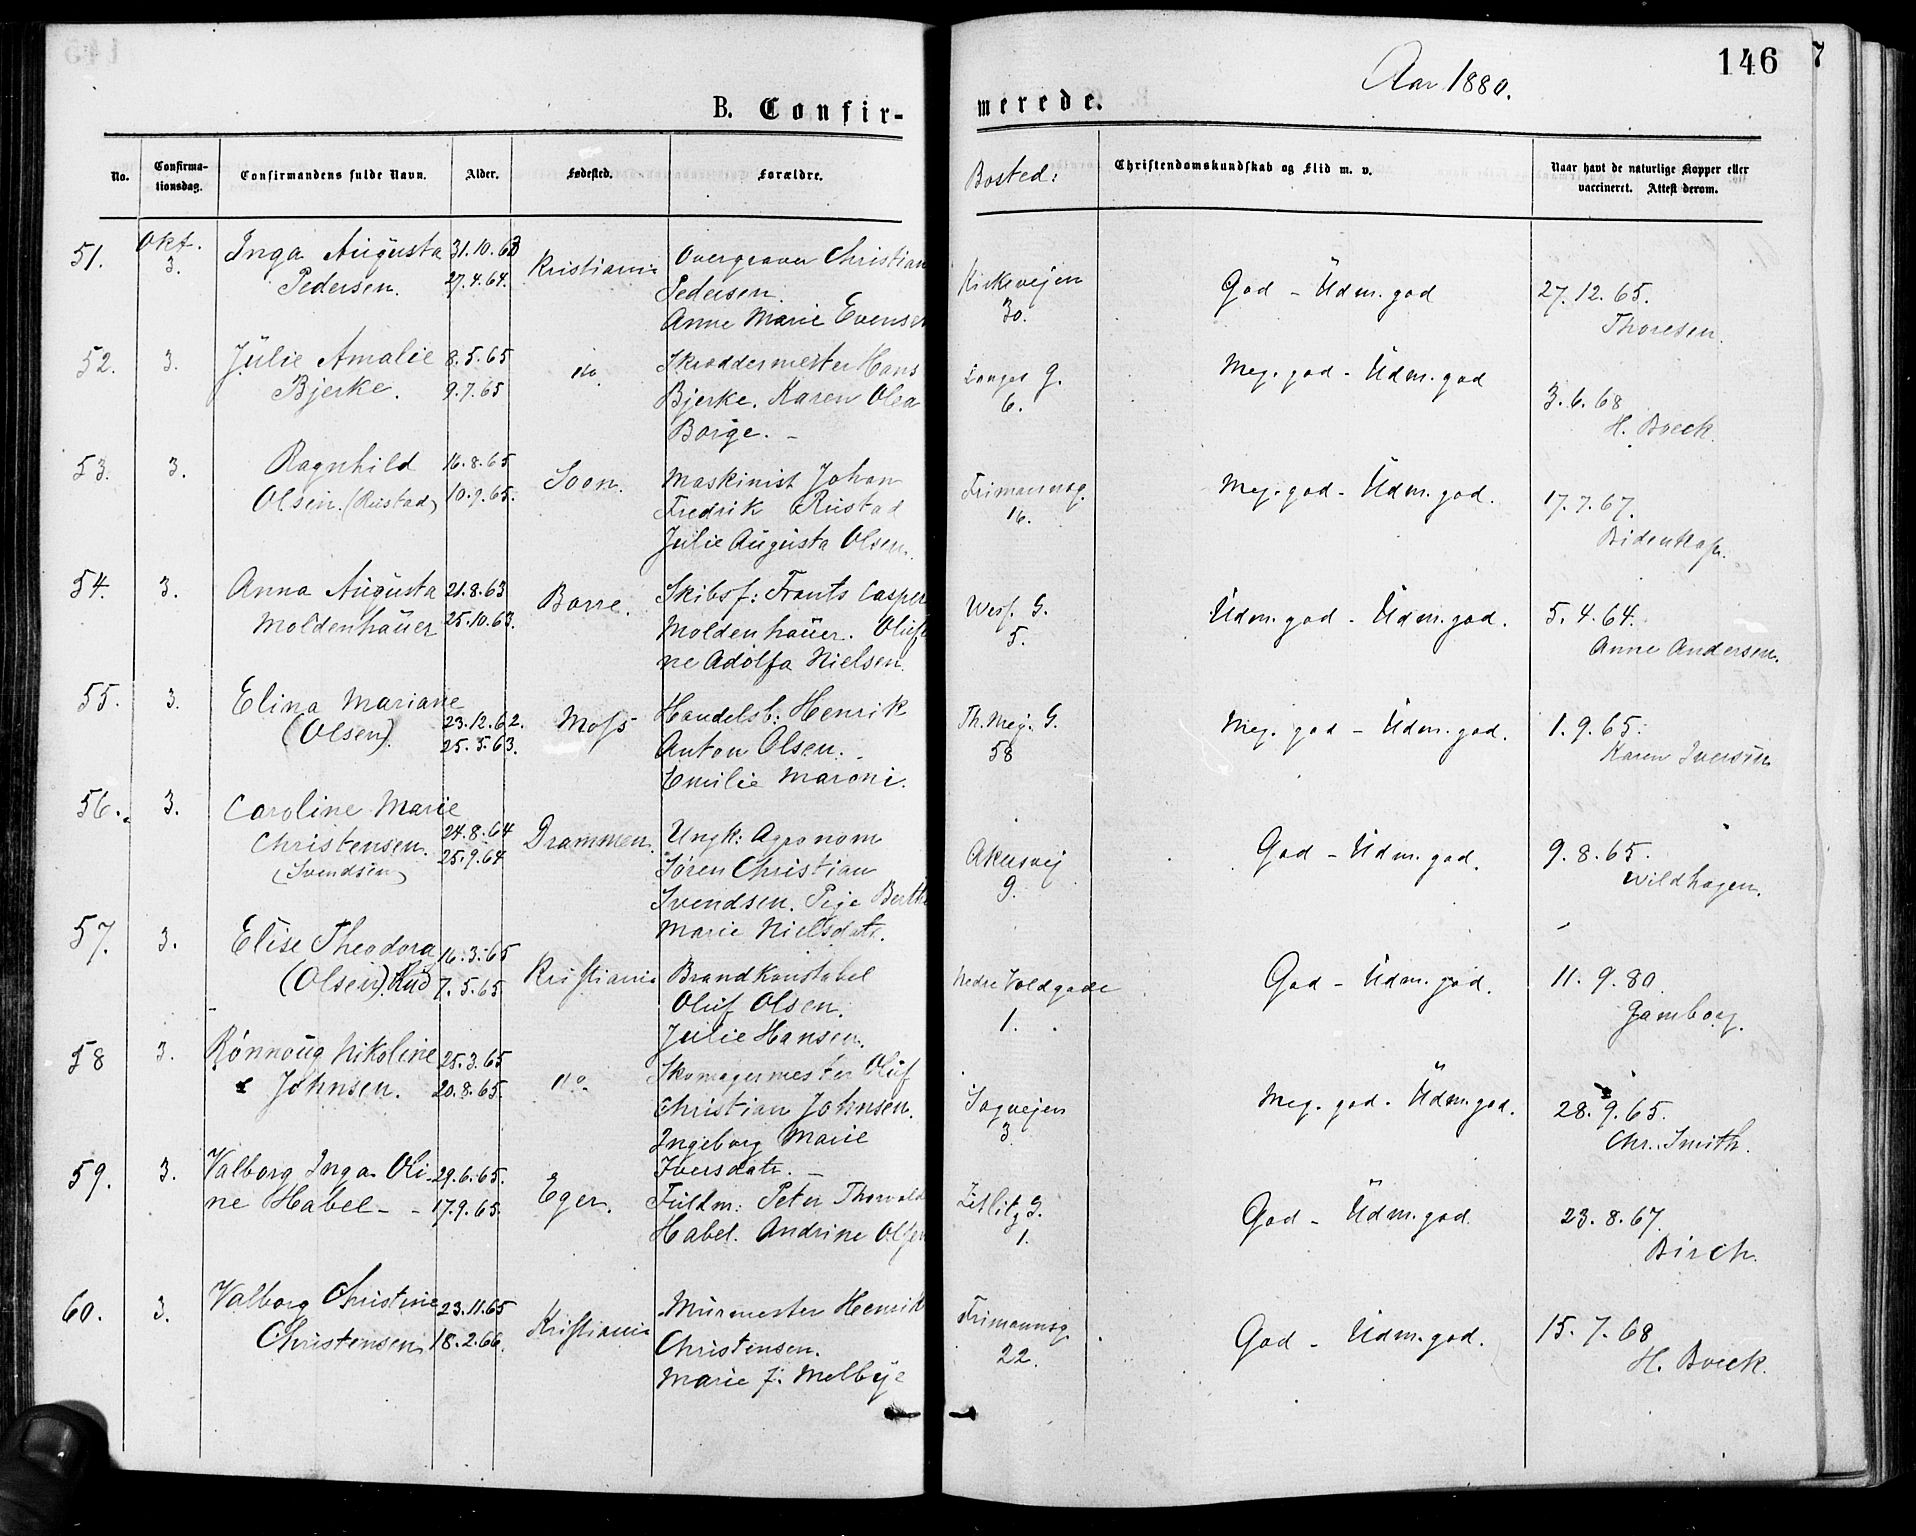 146
7
Aar 1880.
B. Confir-
merede.
No.
Confirma-
tionsdag.
Confirmandens fulde Navn.
Alder.
Fødested.
Forældre.
Bosted:
Christendomskundskab og Flid m. v.
Naar havt de naturlige Kopper eller
vaccineret. Attest derom.
51. Okt. 3. Inga Augusta 31.10.63 Kristiania Overgraver Christian Kirkevejen God - Üdm. god 27.12.65.
Pedersen. 27.4.64. Pedersen. 30. Thoresen.
Anne Marie Evensen
52. 3. Julie Amalie 8.5.65 do Skræddermester Hans Langes G. Meg. god - Üdm. god 3.6.68
Bjerke. 9.7.65 Bjerke. Karen Olea 6. H. Boeck.
Borge. -
53. 3. Ragnhild 16.8.65 Soon. Maskinist Johan Frimannsg. Meg. god - Üdm. god. 17.7.67.
Olsen. (Rustad) 10.9.65. Fredrik Rustad 16. Bidenkap.
Julie Augusta Olsen.
54. 3. Anna Augusta 21.8.63 Borre. Skibsf: Frants Casper Wess. G. Üdm. god - Üdm. god. 5.4.64.
Moldenhauer 25.10.63. Moldenhauer. Olufi 5. Anne Andersen.
ne Adolfa Nielsen.
55. 3. Elina Mariane 23.12.62. Moss Handelsb: Henrik Th. Mey. G. Meg. god - Üdm. god. 1.9.65.
(Olsen). 25.5.63. Anton Olsen. 58 Karen Iversen
Emilie Maroni.
56. 3. Caroline Marie 24.8.64 Drammen. Ungk: Agronom Akersvej God - Üdm. god. 9.8.65.
Christensen. 25.9.64 Søren Christian 9. Wildhagen.
(Svendsen) Svendsen. Pige Berthe
Marie Nielsdatr.
57. 3. Elise Theodora 16.3.65 Kristiania Brandkonstabel Nedre Voldgade God - Üdm. god. 11.9.80.
(Olsen). Rud 7.5.65 Oluf Olsen. 1. Jamborg.
Julie Hansen.
58 3. Rønnoug Nikoline 25.3.65 do. Skomagermester Oluf Sagvejen Meg. god - Üdm. god. 28.9.65.
Johnsen. 20.8.65. Christian Johnsen. 3. Chr. Smith.
Ingeborg Marie
Iversdatr. -
59. 3. Valborg Inga Oli- 29.6.65. Eger. Fuldm: Peter Thorvald Zetlitz G. God - Üdm. god. 23.8.67.
ne Habel - - 17.9.65. Habel. Andrine Olsen 1. Birch.
60. 3. Valborg Christine 23.11.65 Kristiania Murmester Henrik Frimannsg. God - Üdm. god. 15.7.68
Christensen 18.2.66. Christensen. 22. H. Boeck.
Marie J. Melbye